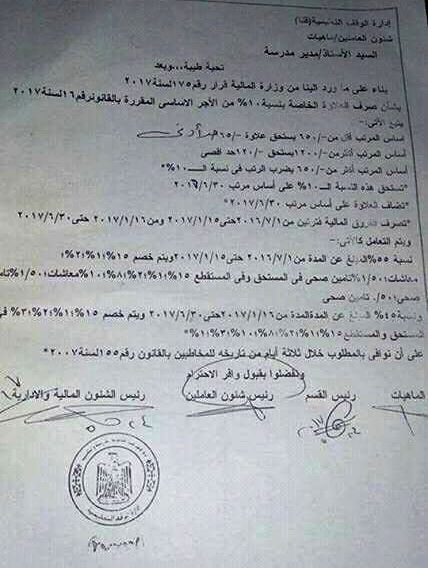 إدارة الوقف التعليمية (قنا)
شئون العاملين/ماهيات
السيد الأستاذ/مدير مدرسة
تحية طيبة...وبعد
بناء على ما ورد الينا من وزارة المالية قرار رقم١٧٥لسنة٢٠١٧
بشأن صرف العلاوة الخاصة بنسبة ١٠% من الأجر الاساسى المقررة بالقانون رقم١٦لسنة٢٠١٧
يتبع الأتى:-
اساس المرتب قل من/٦٥٠ يستحق علاوة /٦٥
أساس المرتب أكثر من/١٢٠٠يستحق /١٢٠حد اقصى
أساس المرتب أكثر من/٦٥٠ يضرب الرتب فى نسبة الـ١٠%
*تستحق هذه النسبة الـ١٠% على أساس مرتب ٢٠١٦/٦/٣٠
*تضاف العلاوة على أساس مرتب ٢٠١٧/٦/٣٠
*تصرف الفروق المالية فترتين من٢٠١٦/٧/١حتى٢٠١٧/١/١٥ ومن٢٠١٧/١/١٦ حتى٢٠١٧/٦/٣٠
ويتم التعامل كالأتى:-
نسبة ٥٥% عن المدة من٢٠١٦/٧/١ حتى ٢٠١٧/١/١٥ويتم خصم ١٥%؛١%؛٢%؛
معاشات؛١/٥٠%تامين صحى فى المستحق وفى المستقطع ١٥%؛١%؛٢%؛٨%؛١٠%معاشات؛١/٥٠%تامين
صحى؛٥٠/. تامين صحى
ونسبة٤٥% عن المدةالمدة من٢٠١٧/١/١٦حتى ٢٠١٧/٦/٣٠ ويتم خصم ١٥%؛١%؛٢%؛٣% فى
المستحق والمستقطع١٥%؛١%؛٢%؛٨%؛١٠%؛٣%؛١%*
على أن نوافى بالمطلوب خلال ثلاثة أيام من تاريخه للمخاطبين بالقانون رقم١٥٥لسنة٢٠٠٧*
وتفضلوا بقبول وافر الاحترام
الماهيات رئيس القسم رئيس شئون العاملين رئيس الشئون المالية والادارية